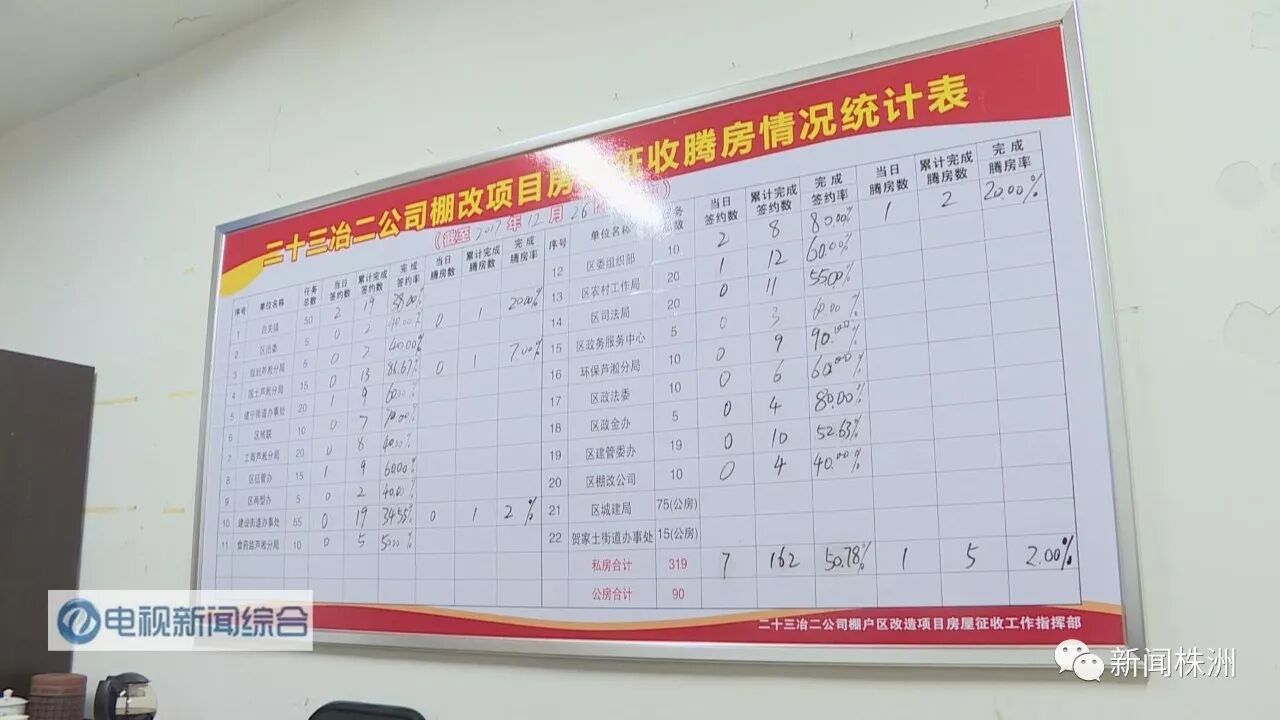 二十三冶二公司棚改项目房 征收腾房情况统计表
（截至2017年12月26
序号 单位名称 任务总数 当日签约数 累计完成签约数 完成签约率 当日腾房数 累计完成腾房数 完成腾房率
1 白关镇 50 2 19 38.00%
2 5 0 2 40.00% 0 1 20.00%
3 芦淞分局 5 0 2 40.00%
4 国土芦淞分局 15 0 13 86.67% 0 1 7.00%
5 建宁街道办事处 20 1 9
6 10 0 7 70.00%
7 工商芦淞分局 20 0 8 40.00%
8 区征管办 15 1 9 60.00%
9 区两型办 5 0 2 40.00%
10 建设街道办事处 55 0 19 34.55% 0 1 2%
11 食药监芦淞分局 10 0 5 50.00%
序号 单位名称 任务总数 当日签约数 累计完成签约数 完成签约率 当日腾房数 累计完成腾房数 完成腾房率
12 区委组织部 10 2 8 80.00% 1 2 20.00%
13 区农村工作局 20 1 12 60.00%
14 区司法局 20 0 11 55.00%
15 区政务服务中心 5 0 3 60.00%
16 环保芦淞分局 10 0 9 90.00%
17 区政法委 10 0 6 60.00%
18 区政金办 5 0 4 80.00%
19 区建管委办 19 0 10 52.63%
20 区棚改公司 10 0 4 40.00%
21 区城建局 75(公房)
22 贺家土街道办事处 15(公房)
私房合计 319 7 162 50.78% 1 5 2.00%
公房合计 90
二十三冶二公司棚户区改造项目房屋征收工作指挥部
电视新闻综合
新闻株洲